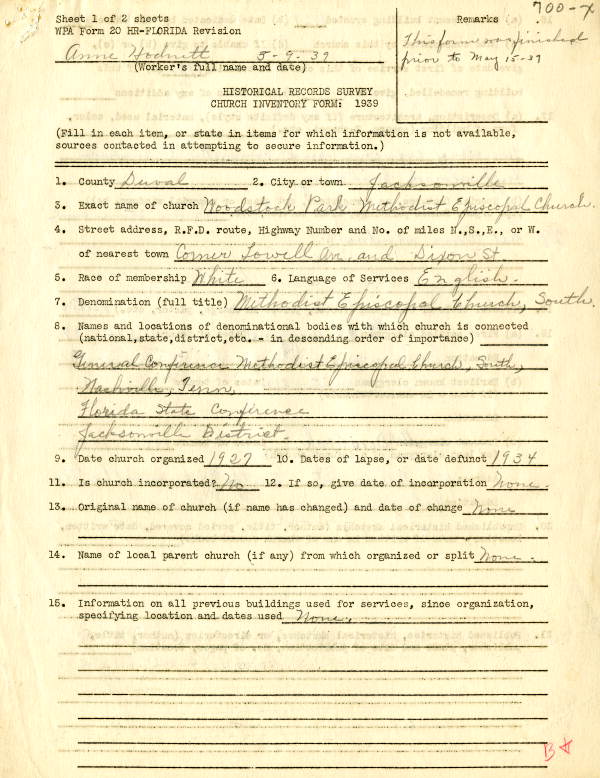 700-X
Sheet 1 of 2 sheets
WPA Form 20 HR-FLORIDA Revision
Anne Hodnett 5-9-39
(Worker's full name and date)
Remarks
This form was finished
prior to May 15-39
HISTORICAL RECORDS SURVEY
CHURCH INVENTORY FORM: 1939
(Fill in each item, or state in items for which information is not available,
sources contacted in attempting to secure information.)
1. County Duval 2. City or town Jacksonville
3. Exact name of church Woodstock Park Methodist Episcopal Church.
4. Street address, R.F.D. route, Highway Number and No. of miles N.,S.,E., or W.
of nearest town Corner Lowell Av. and Dixon St
5. Race of membership White 6. Language of Services English.
7. Denomination (full title) Methodist Episcopal Church, South.
8. Names and locations of denominational bodies with which church is connected
(national,state,district,etc. - in descending order of importance)
General Conference Methodist Episcopal Church, South,
Nashville, Tenn.
Florida State Conference
Jacksonville District.
9. Date church organized 1927 10. Dates of lapse, or date defunct 1934
11. Is church incorporated? No 12. If so, give date of incorporation None.
13. Original name of church (if name has changed) and date of change None
14. Name of local parent church (if any) from which organized or split None.
15. Information on all previous buildings used for services, since organization,
specifying location and dates used None.